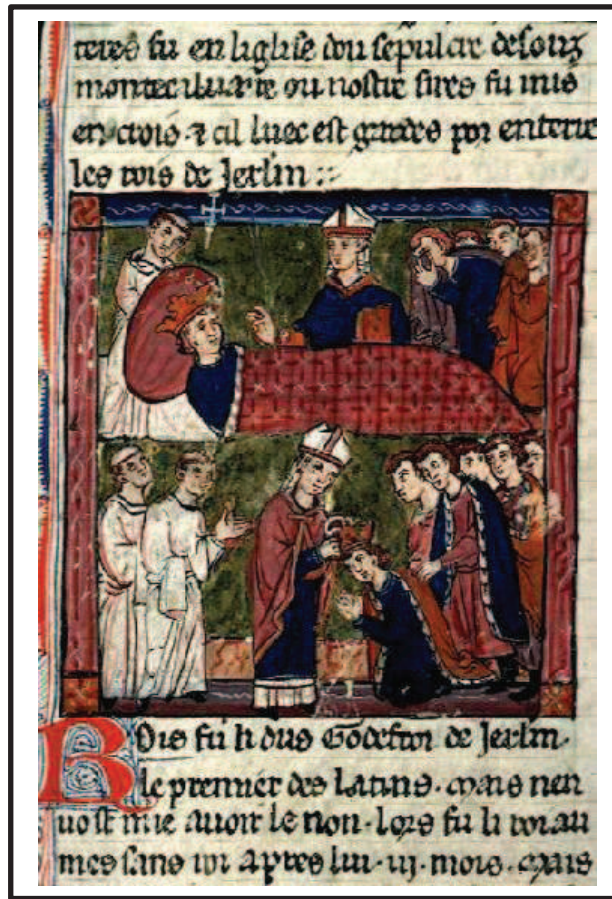 teres fu en liglise dou sepulcre desouz
monte caluarie ou nostre sires fu mis
en crois ⁊ cil luec est gardes por enterrer
les rois de Jerlm
Rois fu li dus Godefroi de Jerlm.
le premier des Latins. mais nen
uost mie auoir le non. lors fu li roiau
mes sans roi apres lui. iij. mois. mais